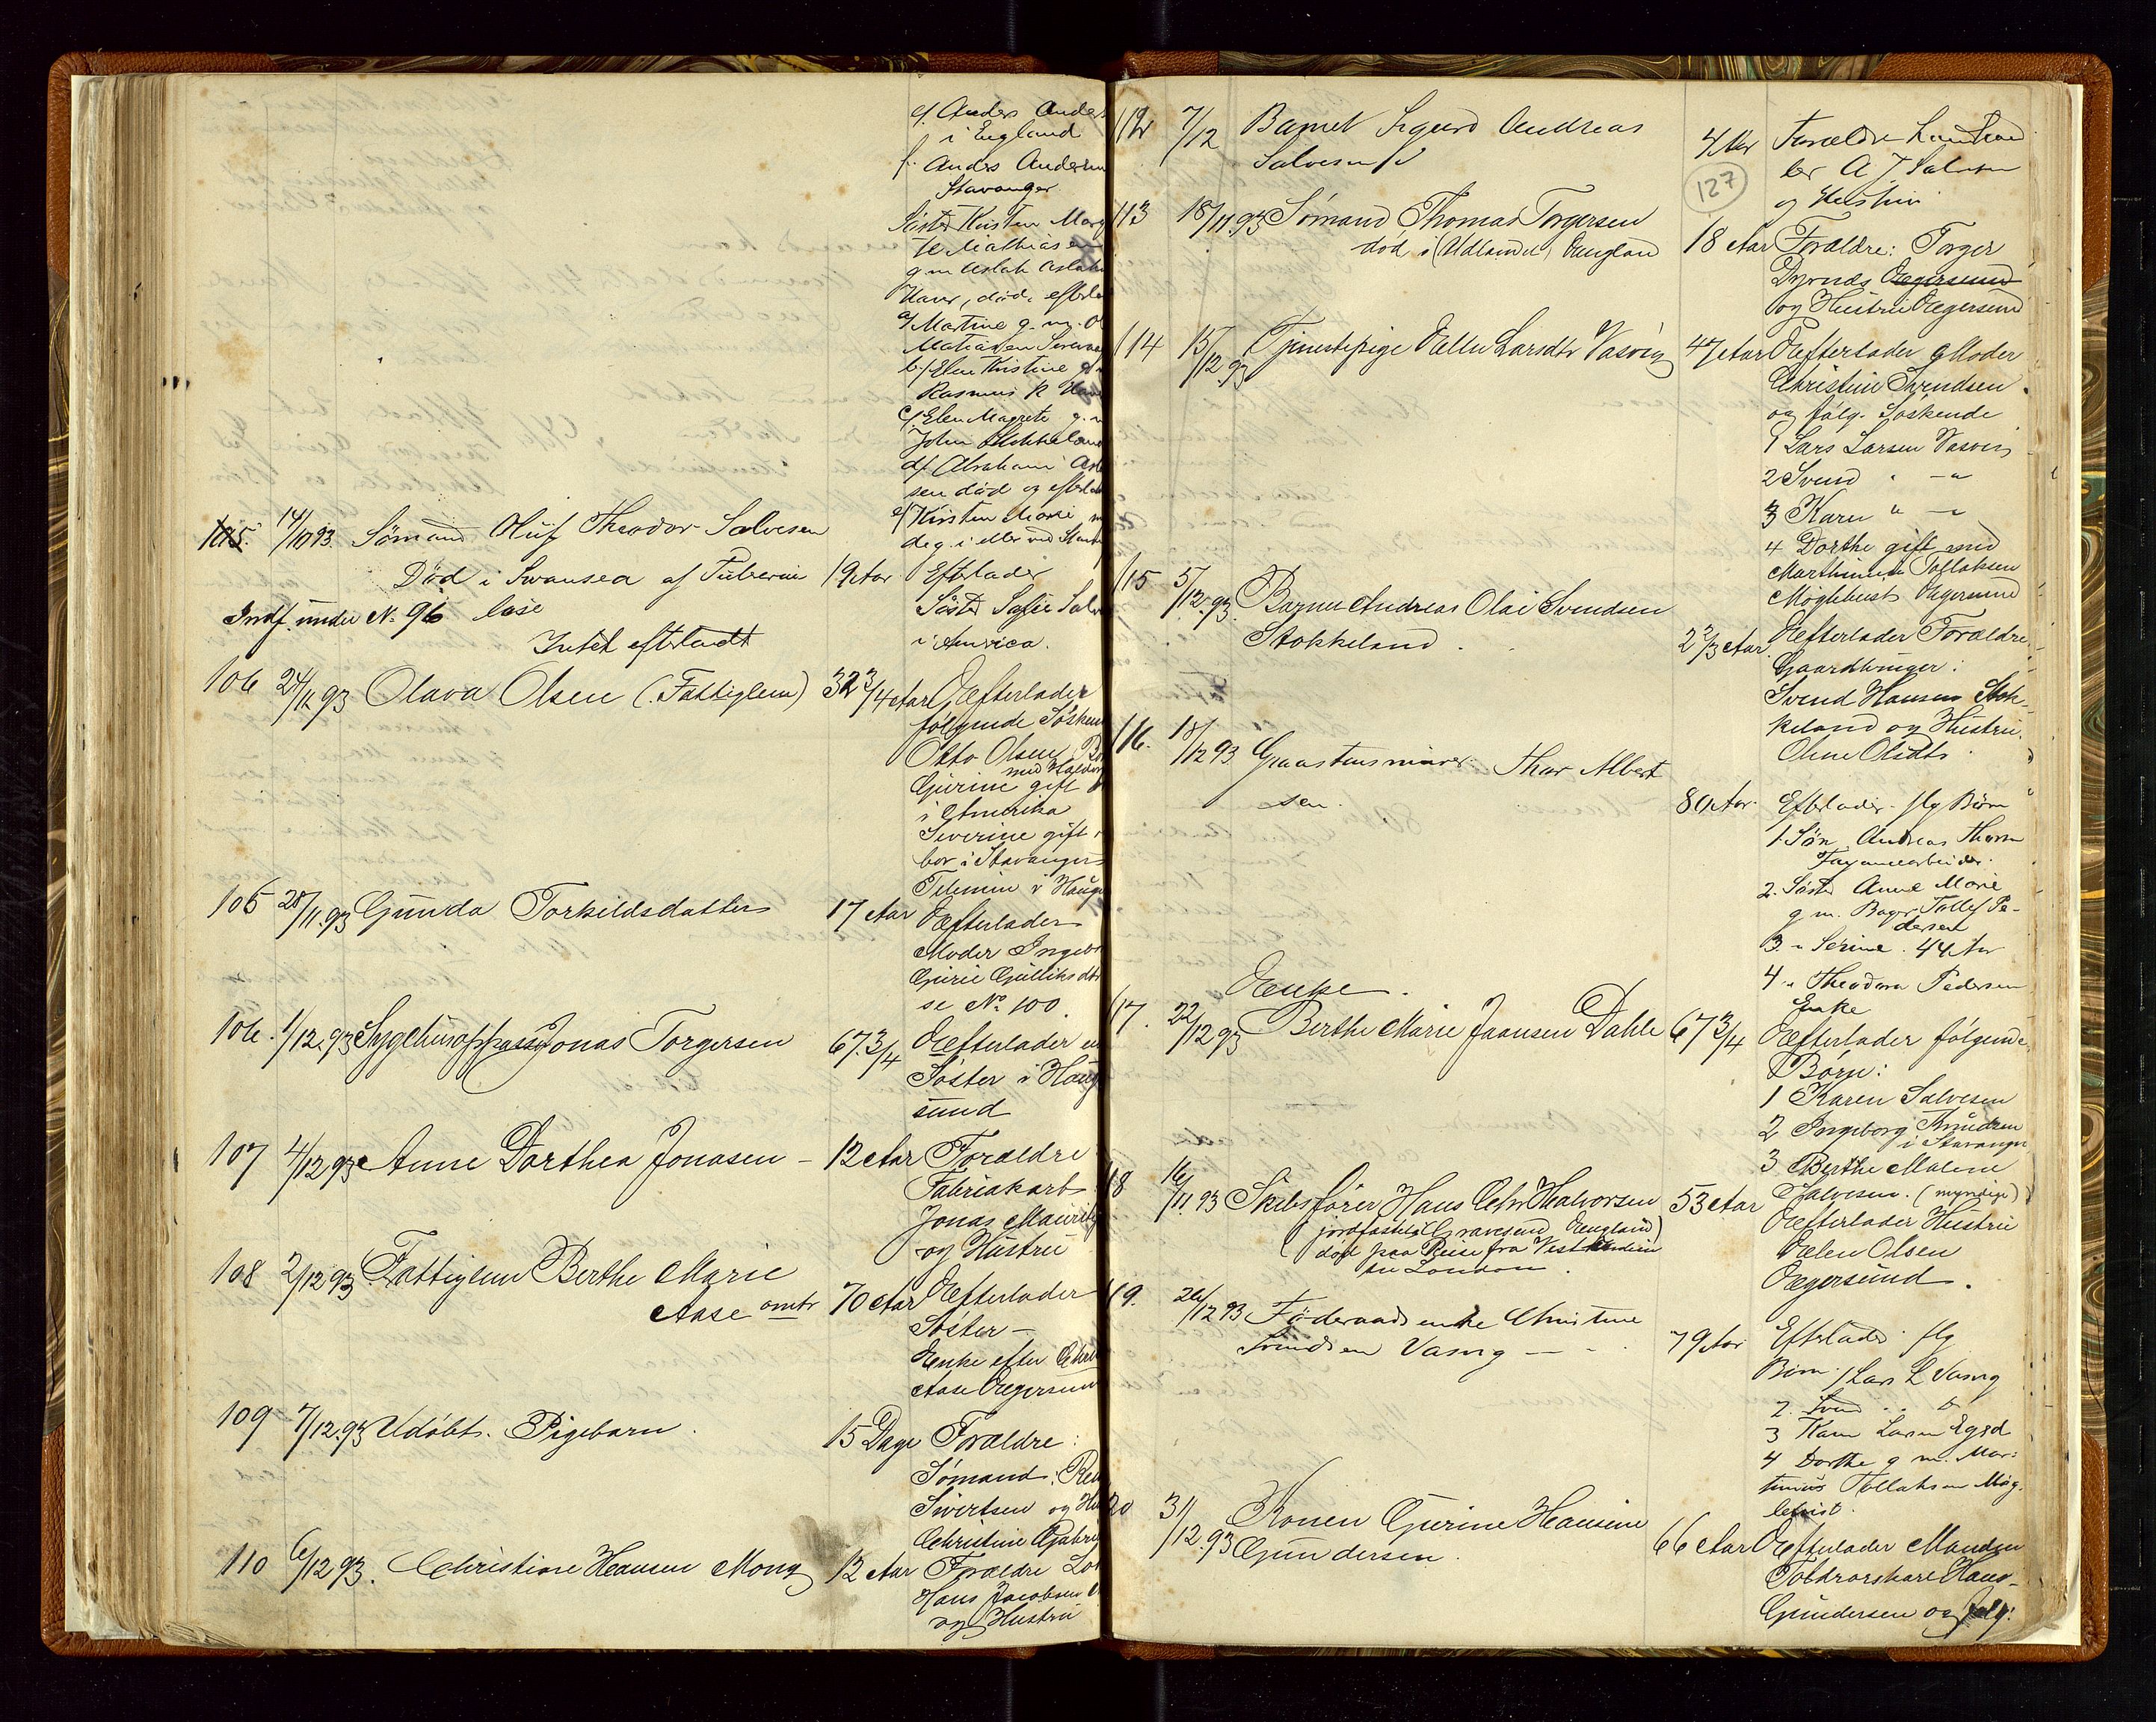 e/ Anders Anders
i England
f. Anders Andersen
Stavanger
Søster Kirsten Marg
g. m. Aslak Aslak
Haar, død, efterla
a/ Martine g. m. Ol
b/ Elen Kristine g
Rasmus R
c/ Elen Magrete g. m
John
d/ Abraham Asl
sen død og efterla
e/ Kirsten Marie
deg. i eller ved Stav
105. 14/10 93. Sømand Oluf Theodor Salvesen
Død i Swansea af Tubercu 19 Aar Efterlader
lose Søster Sofie Salv
Indf. under No. 96
i America.
Intet efterladt
106 24/11 93 Olava Olsen (Fattiglem) 32 3/4 Aar Efterlader
følgende Søsken
Otto Olsen
Gurine gift med
i Amerika
Severine gift
bor i Stavanger
i Hauge
105 28/11.93 Gunda Torkildsdatter 17 Aar Efterlader
Moder Ingeb
Gurie Gulliksdtr
se No 100.
106. 1/12.93 Jonas Torgersen 67 3/4 Efterlader en
Søster i Haug
sund
107 4/12 93 Anne Dorthea Jonasen – 12 Aar Forældre
Fabriakarb
Jonas Mauritz
og Hustru
108 2/12 93 Fattiglem Berthe Marie
Aase omtr 70 Aar Efterlader
Søster –
Enke efter Chri
Aase Egersun
109 7/12.93 Udøbt. Pigebarn. 15 Dage Forældre:
Sømand:
Sivertsen og Hu
Christine Gabri
110 6/12 93. Christiane Hansen Mong 12 Aar Forældre Lo
Hans Jacobsen
og Hustru
112 7/12 Barnet Sigurd Andreas
Salvesen 4 Aar Forældre
ler A J Salvesen
127
og Hustru
113 18/11 93 Sømand Thomas Torgersen
død i (Udlandet) England 18 Aar Forældre: Torger
Egersund
og Hustru Egersund
114 15/12 93 Tjenestepige Ellen Larsdtr Vasvig 47 Aar Efterlader Moder
Christine Svendsen.
og følg. Søskende
1 Lars Larsen Vasvig
2 Svend " – "
3 Karn " – "
4 Dorthe gift med
Marthinius Tollaksen
Møglebust Egersund
115 5/12.93. Barnet Andreas Olai Svendsen
Stokkeland. 2 2/3 Aar Efterlader Forældre
Gaardbruger:
Svend Hansen Stok-
keland og Hustru
Oline Olsdtr
116. 18/12 93 Graastensmurer. Thor Albert
sen. 80 Aar. Efterlader flg Børn
1. Søn Andreas Thorsen
Fayancearbeider.
2. Søster Anne Marie
g m. Bager Tollef Pe-
dersen
3 " Serine. 44 Aar
4 " Theodora Pedersen
Enke
Enke.
117. 22/12 93 Berthe Marie Jaansen Dahle 67 3/4 Efterlader følgende
Børn:
1 Karen Salvesen
2 Ingeborg Knudsen
i Stavanger
3 Berthe Malene
Salvesen. (myndige)
118 16/11.93 Skibsfører Hans Chr Halvorsen 53 Aar Efterlader Hustru
jordfæstet i Gravesend England)
død paa Reise fra Vestindien
til London.
Elen Olsen
Egersund.
119. 26/12 93 Føderaadsenke Christine
Svendsen Vasvig – 79 Aar Efterlader flg
Børn. 1 Lars L Vasvig
2. Svend " "
3 Karn Larsen Egsd
4 Dorthe g m. Mar-
tinius Tollaksen Møg-
lebust.
120 31/12.93 Konen Gurine Hansine
Gundersen. 66 Aar Efterlader Manden
Hans
Gundersen og følg: